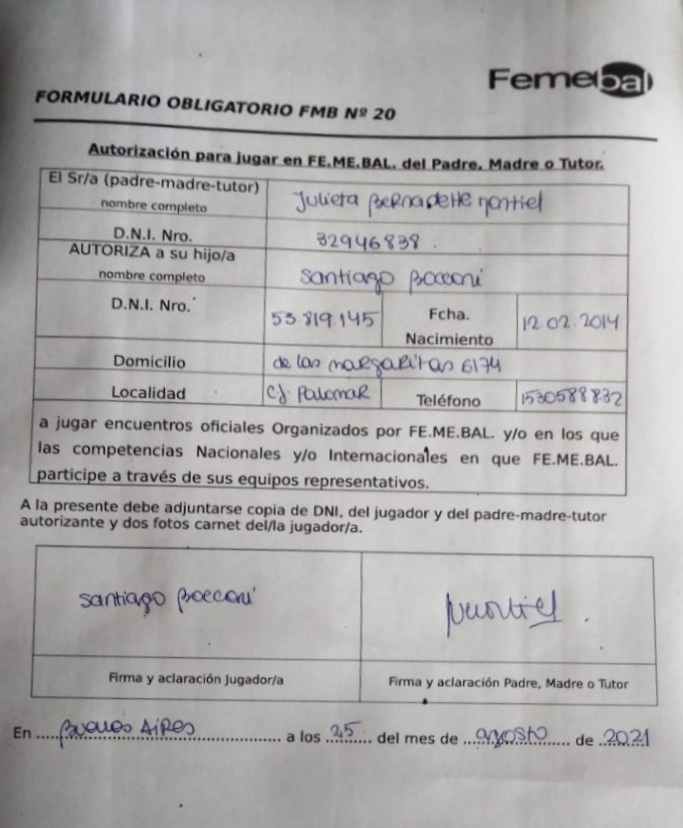 Femebal
FORMULARIO OBLIGATORIO FMB Nº 20
Autorización para jugar en FE.ME.BAL. del Padre, Madre o Tutor.
El Sr/a (padre-madre-tutor)
nombre completo
Julieta Bernadette Montiel
D.N.I. Nro.
32946838.
AUTORIZA a su hijo/a
nombre completo
Santiago Bocconi
D.N.I. Nro.
53.819.145
Fcha.
Nacimiento
12.02.2014
Domicilio
de las margaritas 6174
Localidad
Cj. Palomar
Teléfono
1530588832
a jugar encuentros oficiales Organizados por FE.ME.BAL. y/o en los que
las competencias Nacionales y/o Internacionales en que FE.ME.BAL.
participe a través de sus equipos representativos.
A la presente debe adjuntarse copia de DNI, del jugador y del padre-madre-tutor
autorizante y dos fotos carnet del/la jugador/a.
Santiago Bocconi
Montiel
Firma y aclaración Jugador/a
Firma y aclaración Padre, Madre o Tutor
En Buenos Aires a los 25 del mes de agosto de 2021